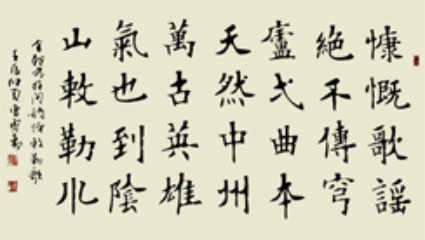 慷慨歌謠
絕不傳穹
廬弌曲本
天然中州
萬古英雄
氣也到陰
山敕勒川